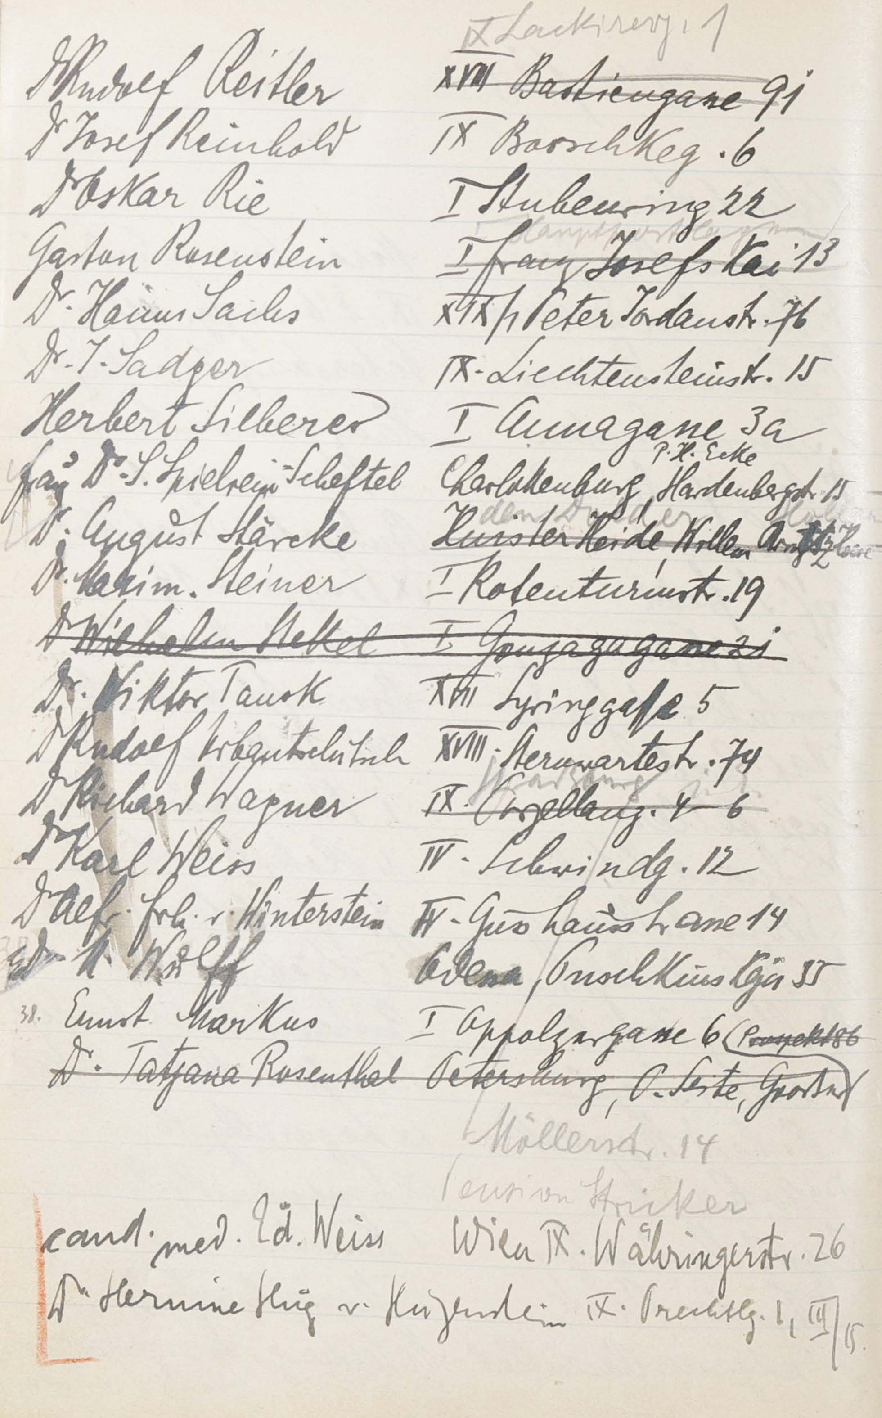 IX Lackirerg. 1
Dr Rudolf Reitler XVIII Bastiengasse 91
Dr Josef Reinhold IX Borschkeg. 6
Dr Oskar Rie I Stubenring 22
Gaston Rosenstein I Franz Josefs Kai 13
Dr. Hanns Sachs XIX/1 Peter Jordanstr. 76
Dr. I. Sadger IX. Liechtensteinstr. 15
Herbert Silberer I Annagasse 3a
P. H. Ecke
Frau Dr. S. Spielrein-Scheftel Charlottenburg, Hardenbergstr. 15
Dr. August Stärcke Huister Heide, Willem
Dr. Maxim. Steiner I Rotenturmstr. 19
Dr Wilhelm Stekel I Gonzagagasse 21
Dr. Viktor Tausk XVII Syringgasse 5
Dr Rudolf Urbantschitsch XVIII. Sternwartestr. 74
Dr Richard Wagner IX. Porzellang. 4-6
Dr Karl Weiss IV. Schwindg. 12
Dr Alfr. Frh. v. Winterstein IV. Gusshausstrasse 14
Dr M. Wulff Odessa, Puschkinskaja 55
38. Ernst Markus I Oppolzergasse 6
Dr. Tatjana Rosenthal Petersburg, P. Seite,
Möllerstr. 14
Pension Stricker
cand. med. Ed. Weiss Wien IX. Währingerstr. 26
Dr. Hermine Hug v. Hugenstein IX. Prechtlg. 1, III/15.